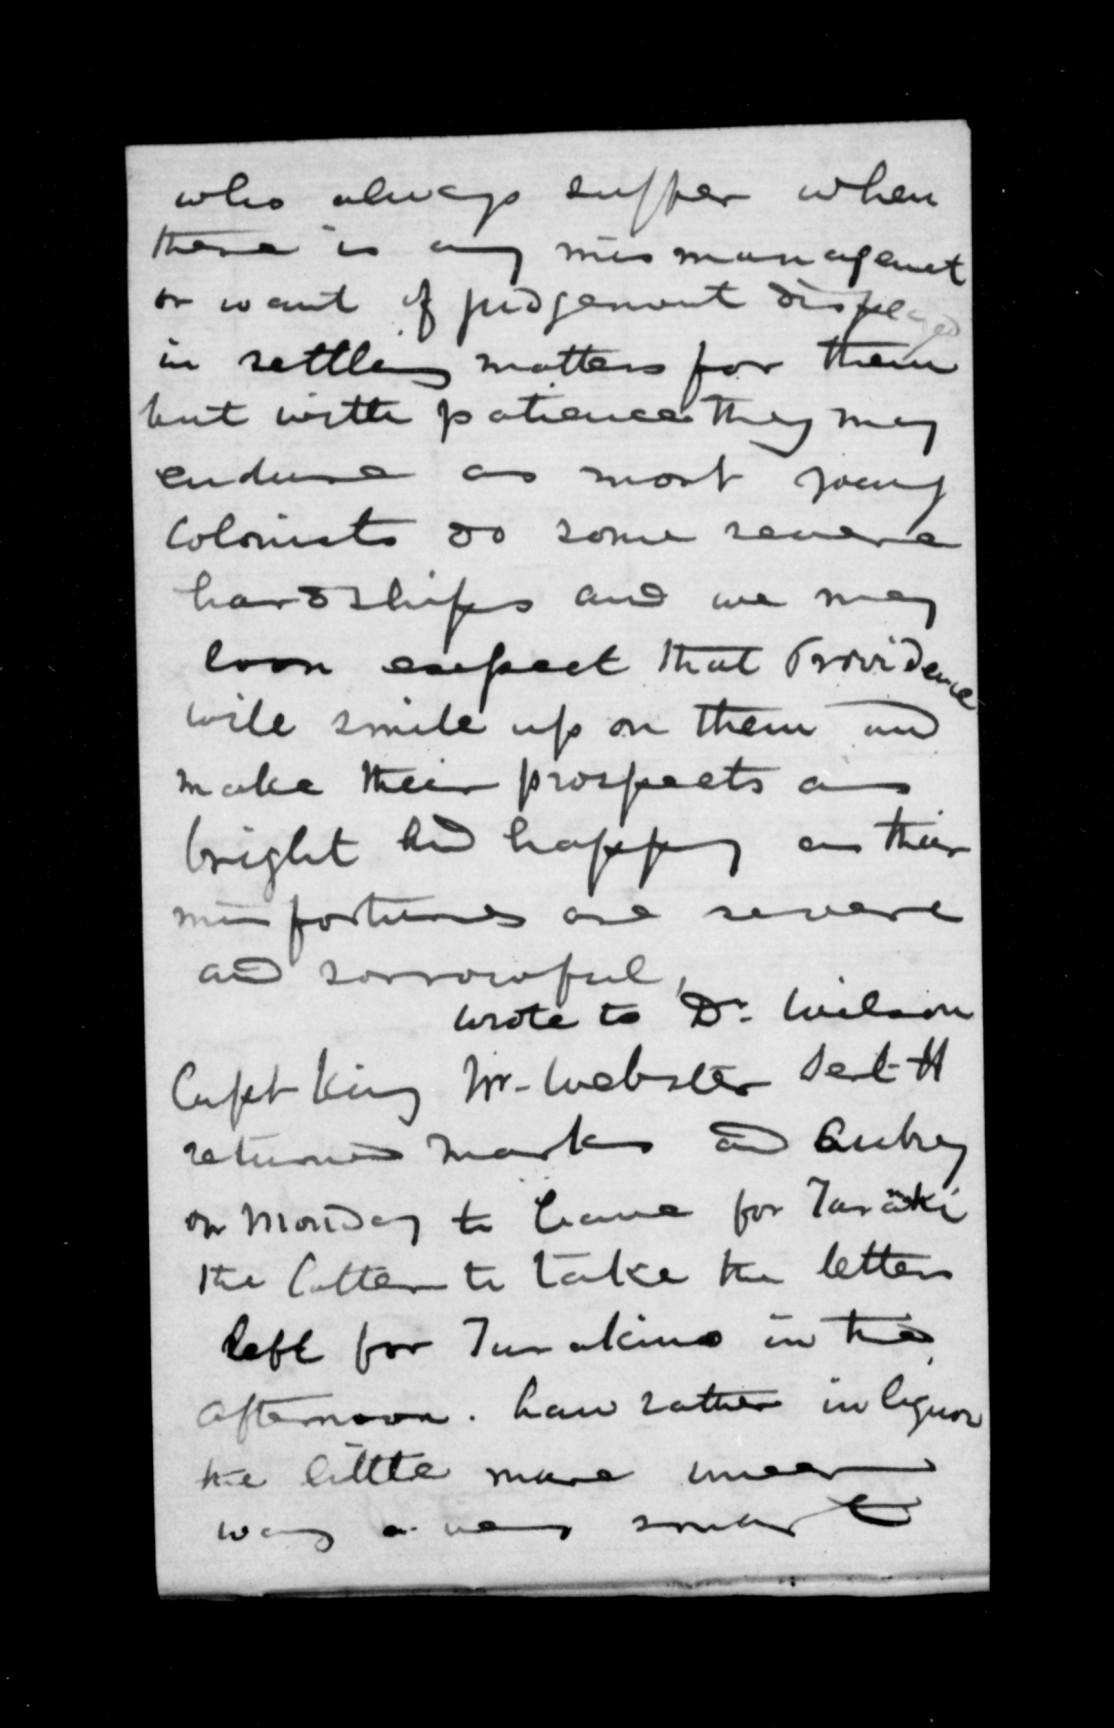 who always suffer when
there is any mismanagemet
or want of judgement displayed
in settling matters for them
but with patience they may
endure as most young
Colonists do some severe
hardships and we may
soon expect that Providence
will smile upon them and
make their prospects as
bright and happy as their
misfortunes are severe
and sorrowful,
wrote to Dr. Wilson
Capt King Mr. Webster
returned Marks and Aubrey
on Monday to leave for
the latter to take the letters
left for Turakina in the
afternoon. rather in liquor
the little mare
way a very smart